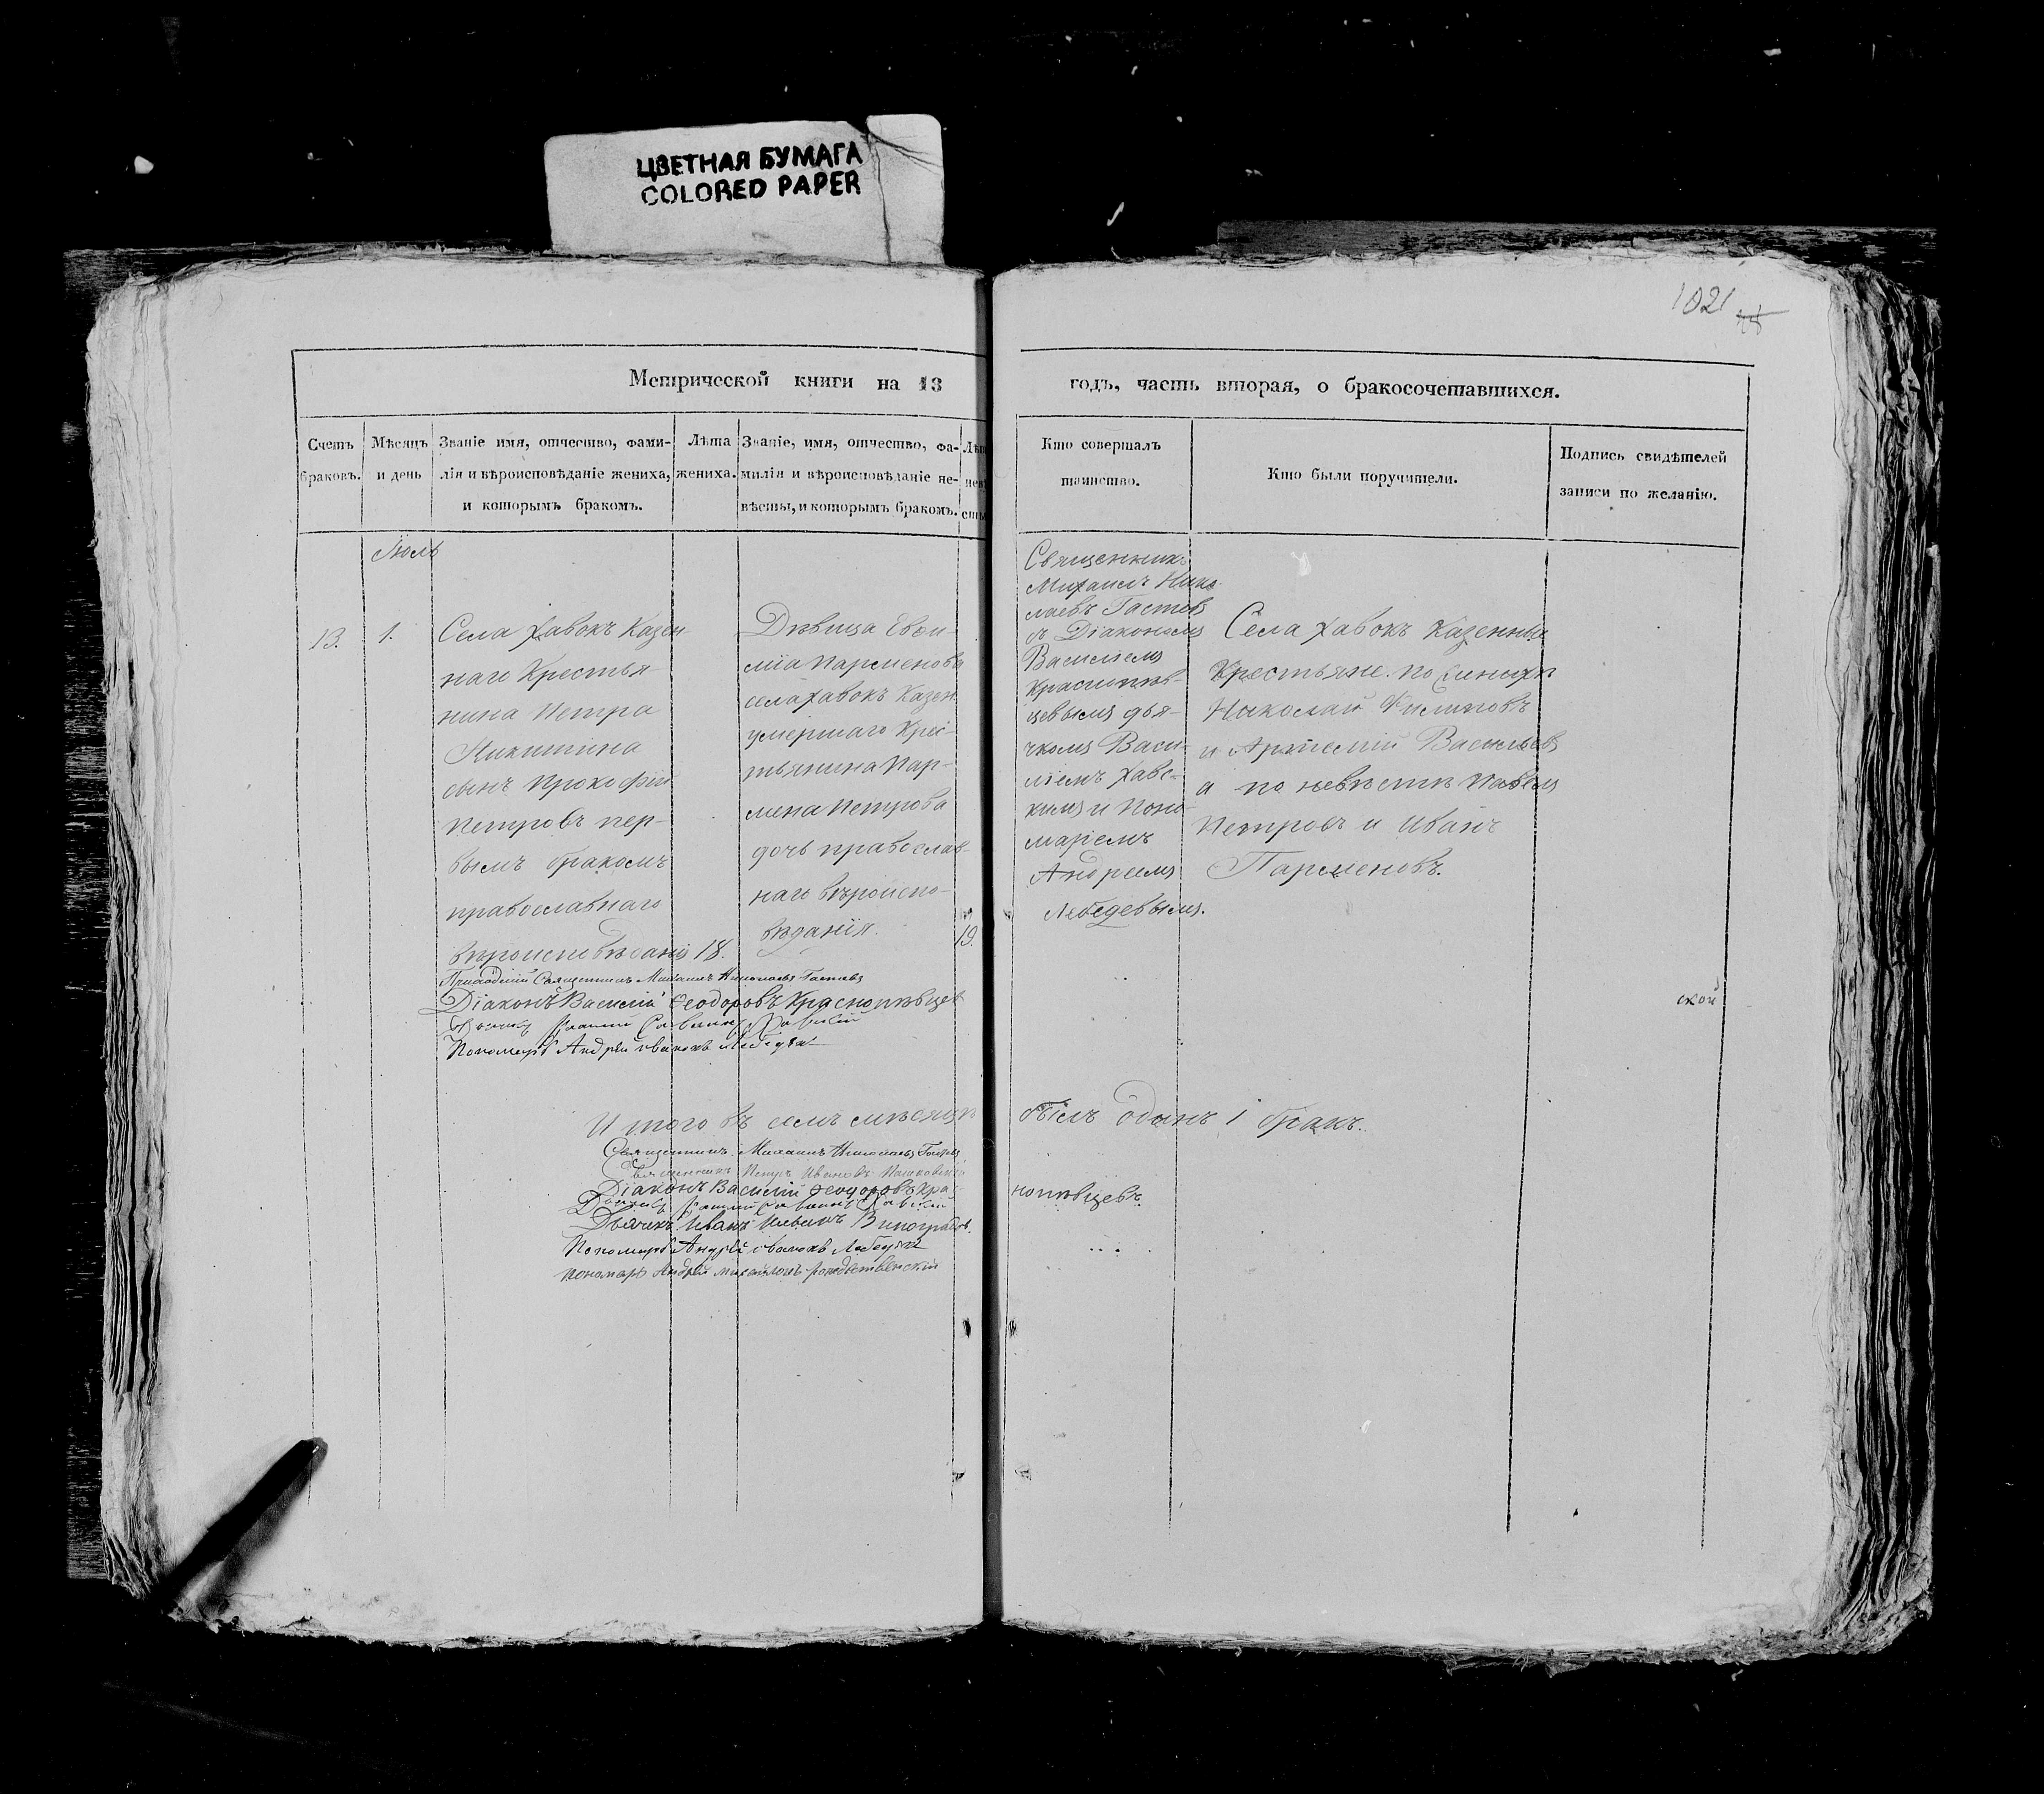 ЦВЕТНАЯ БУМАГА
COLORED PAPER
1021
Метрической книги на 18
годъ, часть вторая, о бракосочетавшихся.
Счетъ браковъ.
Мѣсяцъ и день
Званіе имя, отчество, фами-
лія и вѣроисповѣданіе жениха,
и которымъ бракомъ.
Лѣта
жениха.
Званіе, имя, отчество, фа-
милія и вѣроисповѣданіе не-
вѣсты, и которымъ бракомъ.
Кто совершалъ
таинство.
Кто были поручители.
Подпись свидѣтелей
записи по желанію.
Июль
13.
1.
Села Хавокъ Казен-
наго Крестья-
нина Петра
Никитина
сынъ Прокофій
Петровъ пер-
вымъ бракомъ
православнаго
вѣроисповѣданія
18.
Дѣвица Евѳи-
мія Парменова
села Хавокъ Казен.
умершаго Крес-
тьянина Пар-
мена Петрова
дочь православ-
наго вѣроиспо-
вѣданія.
19.
Священникъ
Михаилъ Нико-
лаевъ Гастевъ
съ Діакономъ
Василіемъ
Краснопѣв-
цевымъ дья-
чкомъ Васи-
ліемъ Хавс-
кимъ и Поно-
маремъ
Андреемъ
Лебедевымъ.
Села Хавокъ Казенны
Крестьяне. по
Николай Филиповъ
и Артемій Васильевъ
а по невѣстѣ Павелъ
Петровъ и Иванъ
Парменовъ.
Приходскій Священникъ Михаилъ Николаевъ Гастевъ
Діаконъ Василій Ѳеодоровъ Краснопѣвцев
Пономарь Андрей Ивановъ Лебедев
ской
Итого въ семъ мѣсяцѣ
былъ одинъ 1 бракъ.
Священникъ Михаилъ Николаевъ Гастевъ
Священникъ Петръ Ивановъ
Діаконъ Василій Ѳеодоровъ Крас
нопѣвцевъ
Дьячекъ Иванъ Ильинъ Виноградов.
Пономарь Андрей Ивановъ Лебедев
Пономарь Андрей Михайловъ Рождественскій